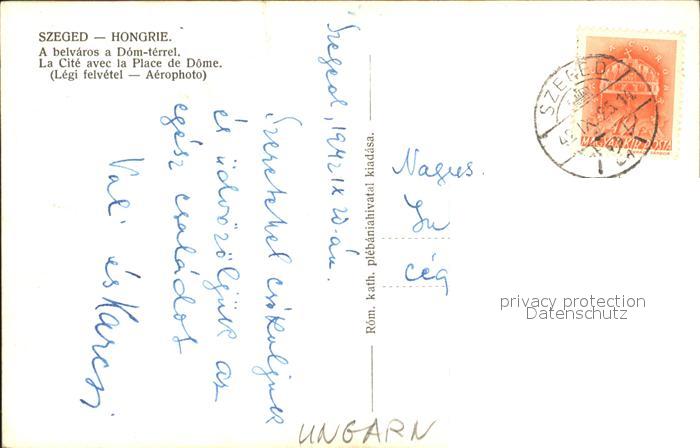 SZEGED — HONGRIE.
A belváros a Dóm-térrel.
La Cité avec la Place de Dôme.
(Légi felvétel — Aérophoto)
Szeged, 1942 IX 25-án.
Szeretettel csókoljuk
és üdvözöljük az
egész családot
Vali és Karcsi
Róm. kath. plébániahivatal kiadása.
Nagys.
cég
SZEGED
MAGYAR KIR. POSTA
privacy protection
Datenschutz
UNGARN